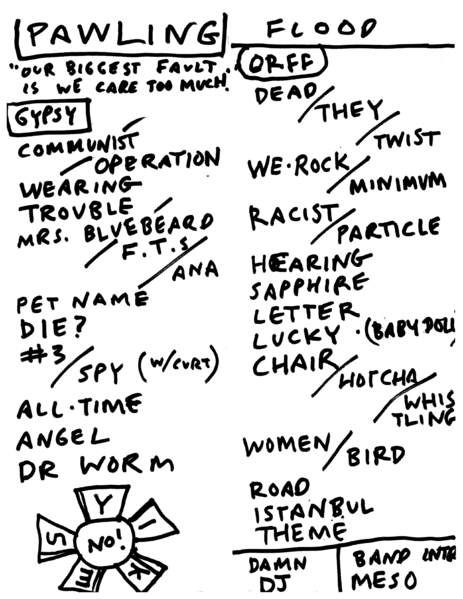 PAWLING
"OUR BIGGEST FAULT
IS WE CARE TOO MUCH."
GYPSY
COMMUNIST /
/ OPERATION
WEARING
TROUBLE /
MRS. BLUEBEARD
/ F.T.S /
/ ANA
PET NAME
DIE?
#3 / SPY (W/CURT)
ALL·TIME
ANGEL
DR WORM
NO!
Y
I
K
E
S
FLOOD
ORFF
DEAD / THEY
/ TWIST
WE·ROCK
/ MINIMUM
RACIST / PARTICLE
HEARING
SAPPHIRE
LETTER
LUCKY · (BABY DOLL
CHAIR / HOTCHA
/ WHIS
TLING
WOMEN / BIRD
ROAD
ISTANBUL
THEME
DAMN
DJ
BAND INTR
MESO